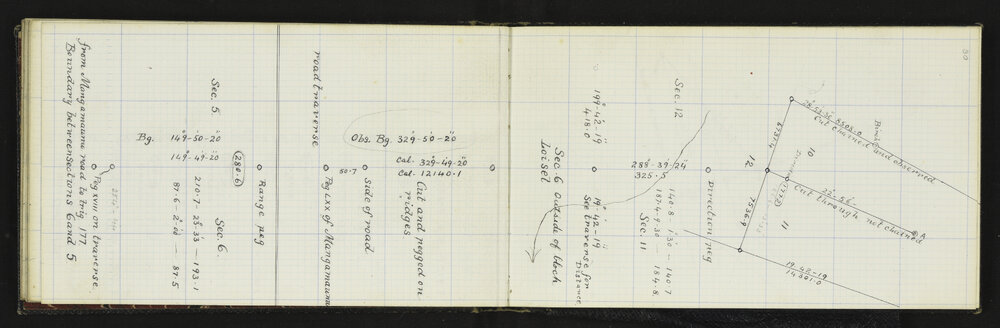 from Mungamaunu road to trig 177.
Boundary between sections 6 and 5
Peg xviii on traverse.
Bg. 149°-50'-20"
149°-49'-20"
Sec. 5.
Sec 6.
210.7 - 23°.33' — 193.1
87.6 - 2°.00' — 87.5
280.6
Range peg
road traverse
Peg LXX of Mangamaunu
50.7
side of road
Obs. Bg. 329°-50'-20"
Cal. 329°-49'-20"
Cal. 12140.1
Cut and pegged on
ridges
Sec. 6 outside of block
Loiset
199°-42'-19"
418.0
19°-42'-19"
See traverse for
Distance.
Sec. 12
288°-39'-24"
325.5
140.8 - 1°.30' — 140.7
187.4 9.30 — 184.8
Sec. 11
Direction peg
30
Cut chained and observed
10
12
11
Cut through not chained
A
19.42-19
14301.0